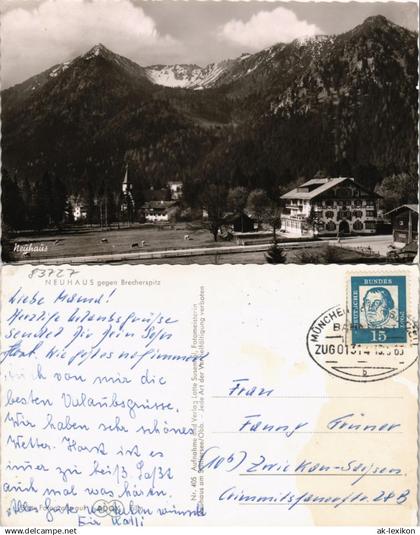 Neuhaus
83727
NEUHAUS gegen Brecherspitz
Liebe Mama!
Herzliche Urlaubsgrüsse
sendet Dir Dein Sohn
Horst.
auch von mir die
besten Urlaubsgrüsse.
Wir haben sehr schönes
Wetter. Horst ist es
immer zu heiß. Laßt
auch mal was hören.
Alles Gute wünscht
Nr. 405 Aufnahme und Verlag Lotte Susemihl, Fotomeisterin
Neuhaus am Schliersee/Obb. Jede Art der Vervielfältigung verboten
DEUTSCHE BUNDESPOST
15
MÜNCHEN
BAHNPOST
ZUG 01314
b
Frau
Fanny Grüner
(10b) Zwickau-Sachsen
Crimmitschauerstr. 28 B
ak-lexikon
www.ak-ansichtskarten.de